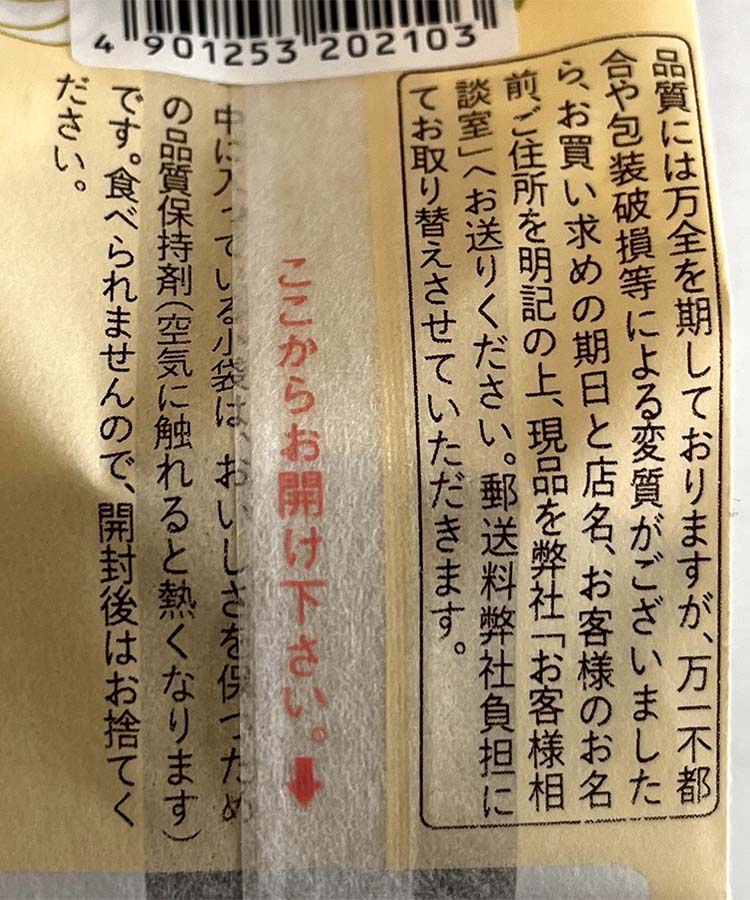 4 901253 202103
品質には万全を期しておりますが、万一不都
合や包装破損等による変質がございました
ら、お買い求めの期日と店名、お客様のお名
前、ご住所を明記の上、現品を弊社「お客様相
談室」へお送りください。郵送料弊社負担に
てお取り替えさせていただきます。
ここからお開け下さい。
中に入っている小袋は、おいしさを保つため
の品質保持剤(空気に触れると熱くなります)
です。食べられませんので、開封後はお捨てく
ださい。